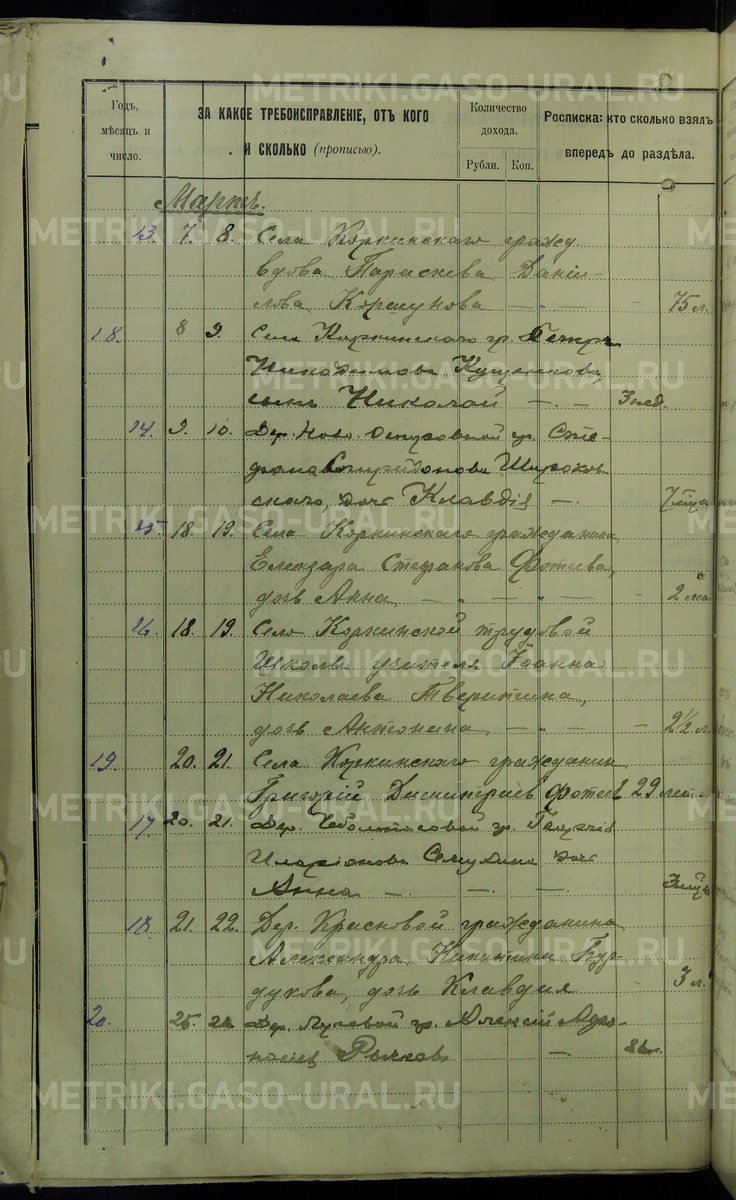 Годъ, мѣсяцъ и число.
ЗА КАКОЕ ТРЕБОИСПРАВЛЕНІЕ, ОТЪ КОГО И СКОЛЬКО (прописью).
Количество дохода.
Рубли. Коп.
Росписка: кто сколько взялъ впередъ до раздѣла.
Мартъ.
13. 7. 8. Села Коркинскаго гражд.
вдова Параскева Даніи-
лова Коршунова — — 75 л.
18. 8 9. Села Коркинскаго гр. Петра
Никодимова Кущенкова,
сынъ Николай — — 3 нед.
14. 9. 10. Дер. Ново
фана Спиридонова Широков
скаго, доч Клавдія —
25. 18. 19. Села Коркинскаго гражданина
Елеазара Стефанова Фотеева,
дочь Анна — — — 2 лет
16. 18. 19. Село Коркинской трудовой
школы учителя Іоанна
Николаева Тверитина,
дочь Антонина — — 2½ л.
19. 20. 21. Села Коркинскаго гражданин
Григорій Димитріев Фотеев 29 лет.
17 20. 21. Дер. гр. Георгія
Иларіонова доч
Анна — — —
18. 21. 22. Дер. Красновой гражданина
Александра Никитина Бур-
дукова, дочь Клавдия 3 л.
20. 25. Дер. гр. Алексій
Рычков —
METRIKI.GASO-URAL.RU